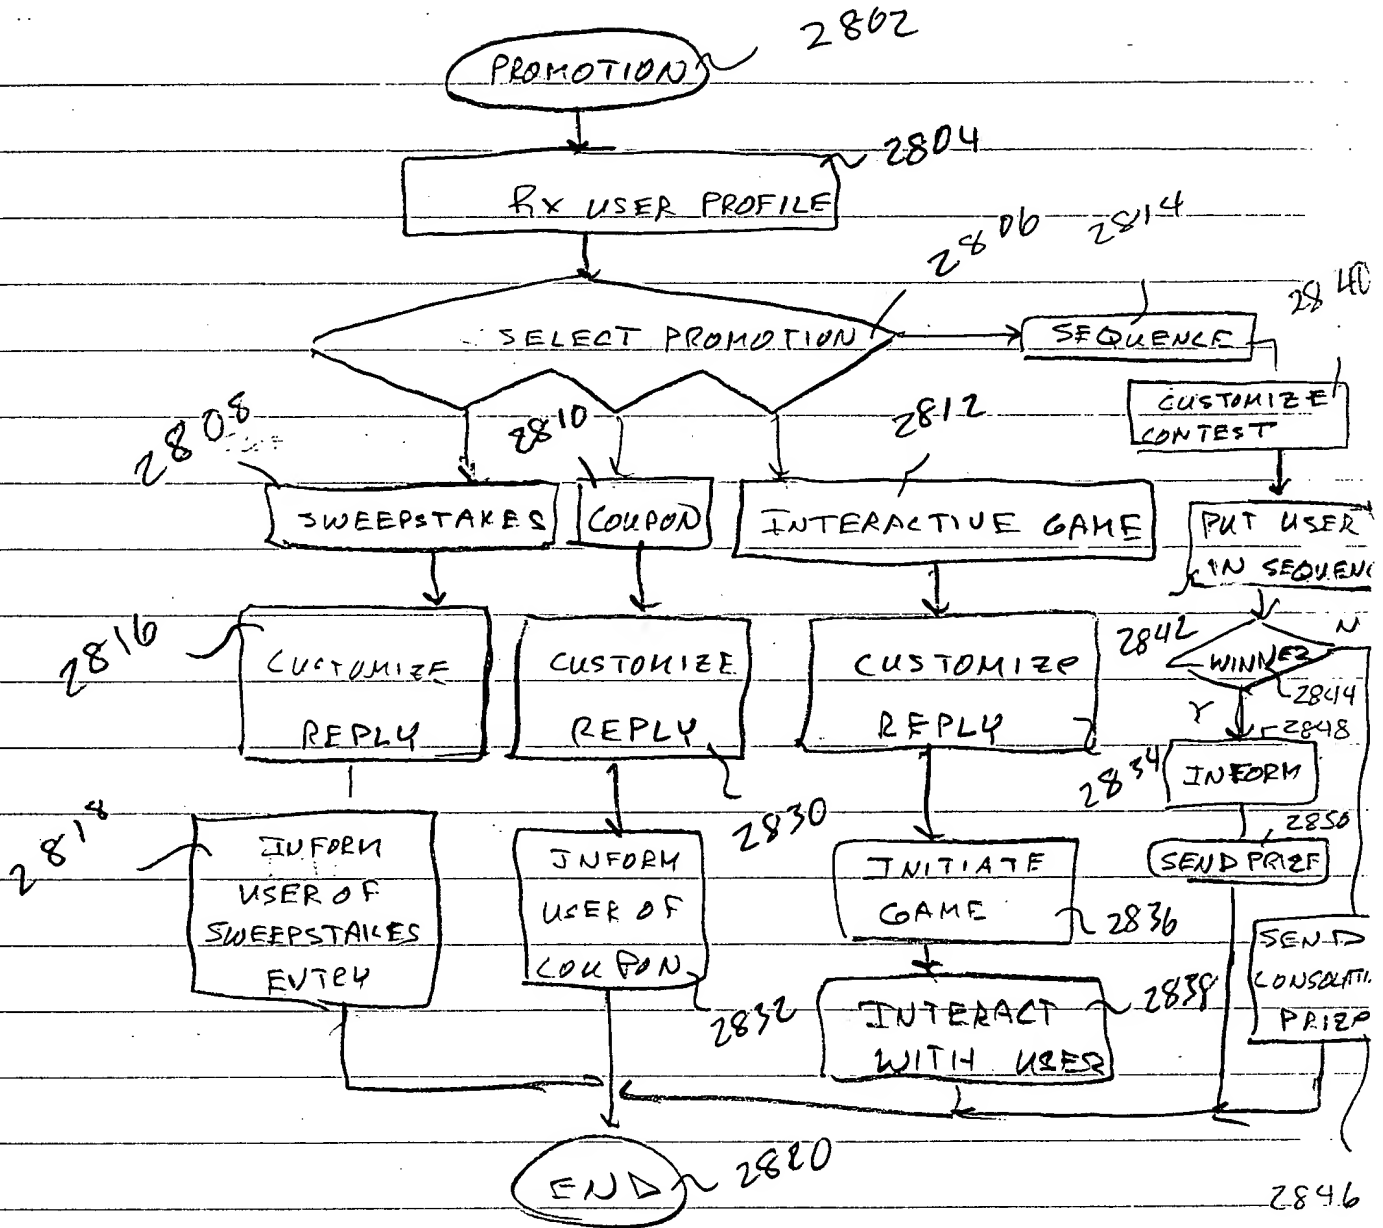 2802
PROMOTION
2804
Rx USER PROFILE
2806
2814
2840
SELECT PROMOTION
SEQUENCE
CUSTOMIZE
CONTEST
2808
2810
2812
SWEEPSTAKES
COUPON
INTERACTIVE GAME
PUT USER
IN SEQUENC
2816
CUSTOMIZE
REPLY
CUSTOMIZE
REPLY
2830
CUSTOMIZE
REPLY
2834
2842
WINNER
N
2844
Y
2848
INFORM
2850
SEND PRIZE
2818
INFORM
USER OF
SWEEPSTAKES
ENTRY
INFORM
USER OF
COUPON
2832
INITIATE
GAME
2836
INTERACT
WITH USER
2838
SEND
CONSOLATI
PRIZE
2846
END
2820